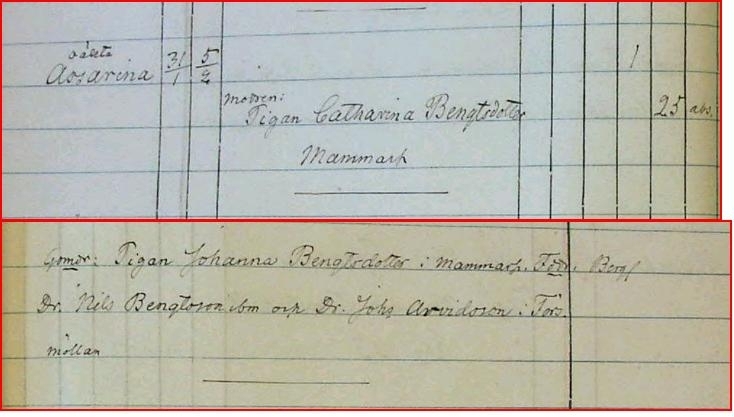 oäkta
Assarina 31/1 5/2 1
modren:
Pigan Catharina Bengtsdotter 25 abs.
Mammarp
Gomor: Pigan Johanna Bengtsdotter i Mammarp. Fadd. Berg/
Dr. Nils Bengtsson ibm och Dr. Johs Arvidsson i Fors
möllan